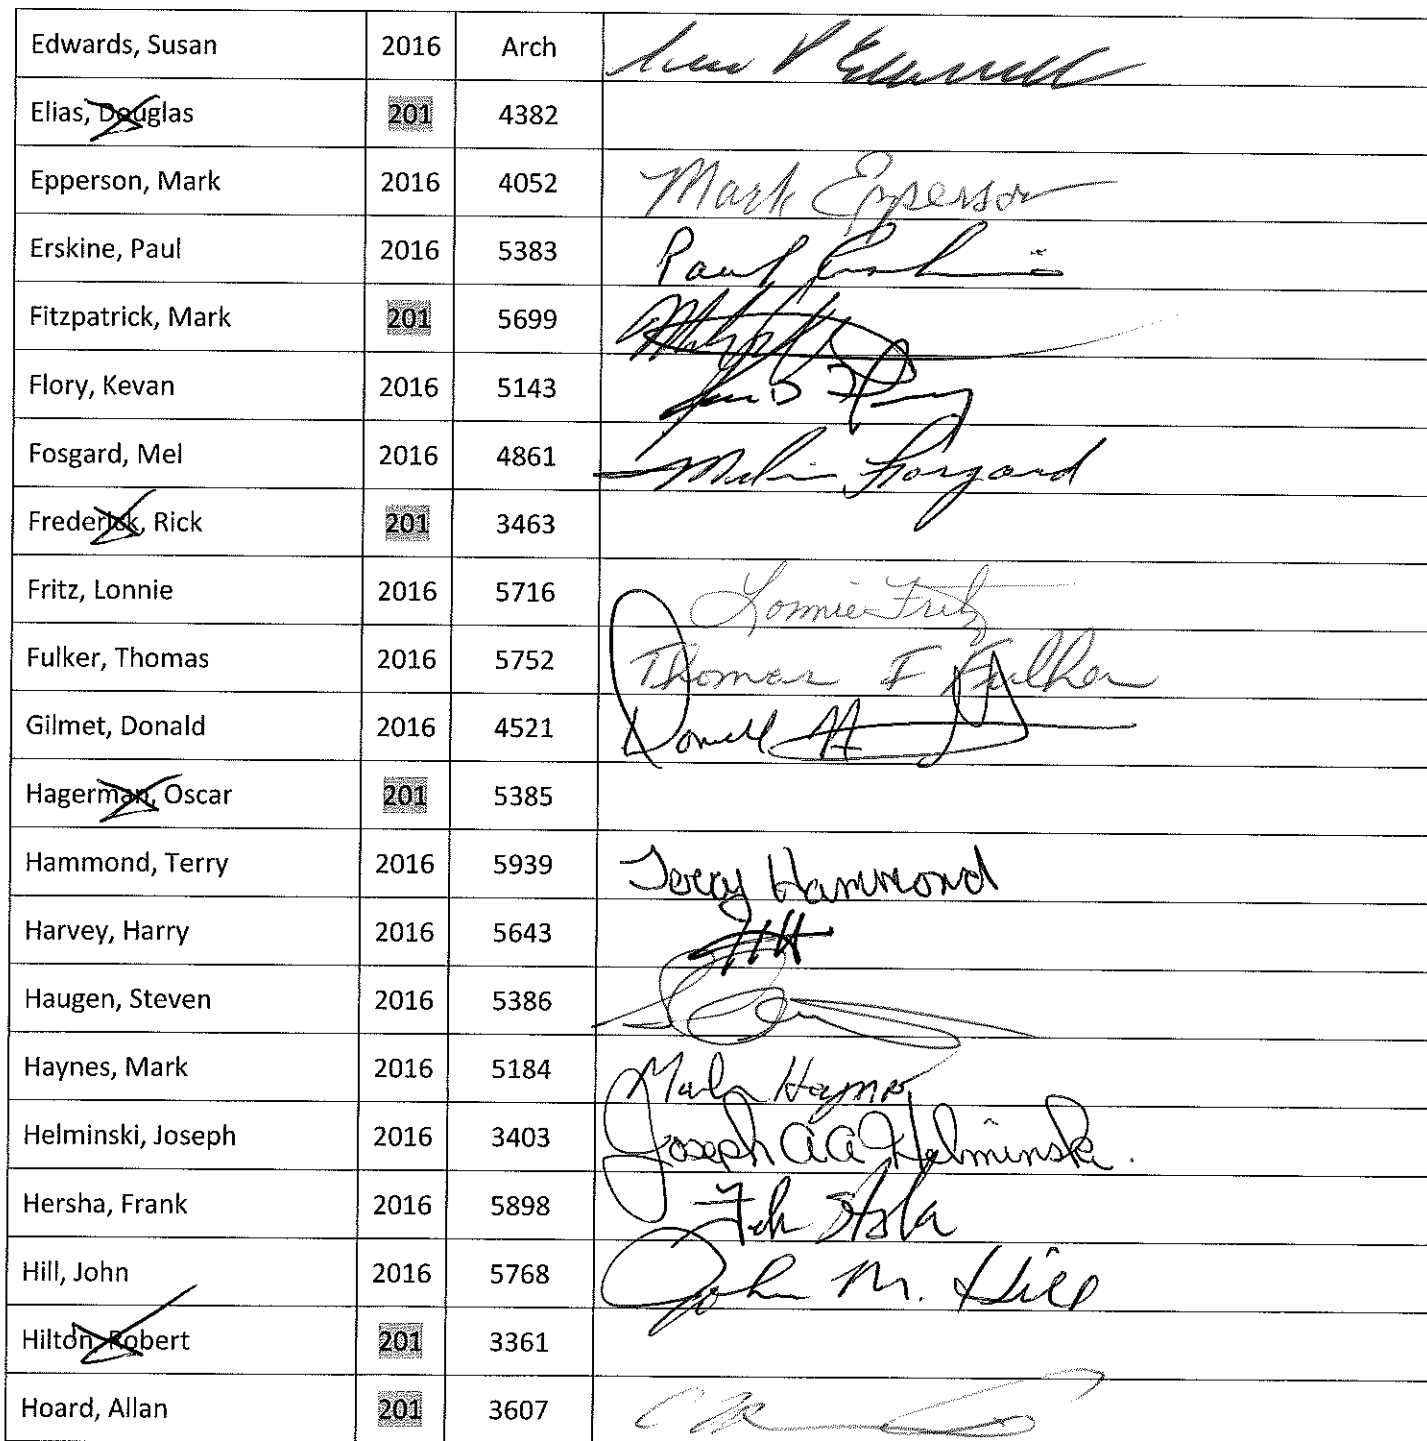 Edwards, Susan 2016 Arch
Elias, Douglas 201 4382
Epperson, Mark 2016 4052 Mark Epperson
Erskine, Paul 2016 5383 Paul Erskine
Fitzpatrick, Mark 201 5699
Flory, Kevan 2016 5143
Fosgard, Mel 2016 4861 Melvin Fosgard
Frederick, Rick 201 3463
Fritz, Lonnie 2016 5716 Lonnie Fritz
Fulker, Thomas 2016 5752 Thomas F Fulker
Gilmet, Donald 2016 4521 Donald
Hagerman, Oscar 201 5385
Hammond, Terry 2016 5939 Terry Hammond
Harvey, Harry 2016 5643 HH
Haugen, Steven 2016 5386
Haynes, Mark 2016 5184 Mark Haynes
Helminski, Joseph 2016 3403 Joseph A A Helminski.
Hersha, Frank 2016 5898
Hill, John 2016 5768 John M. Hill
Hilton, Robert 201 3361
Hoard, Allan 201 3607